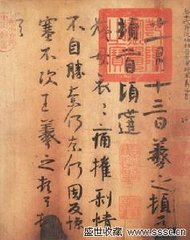 一月十三日羲之頓首
頓首頃遘
姨母哀哀痛摧剝情
不自勝奈何奈何因反慘
塞不次王羲之頓首
盛世收藏 www.sssc.cn